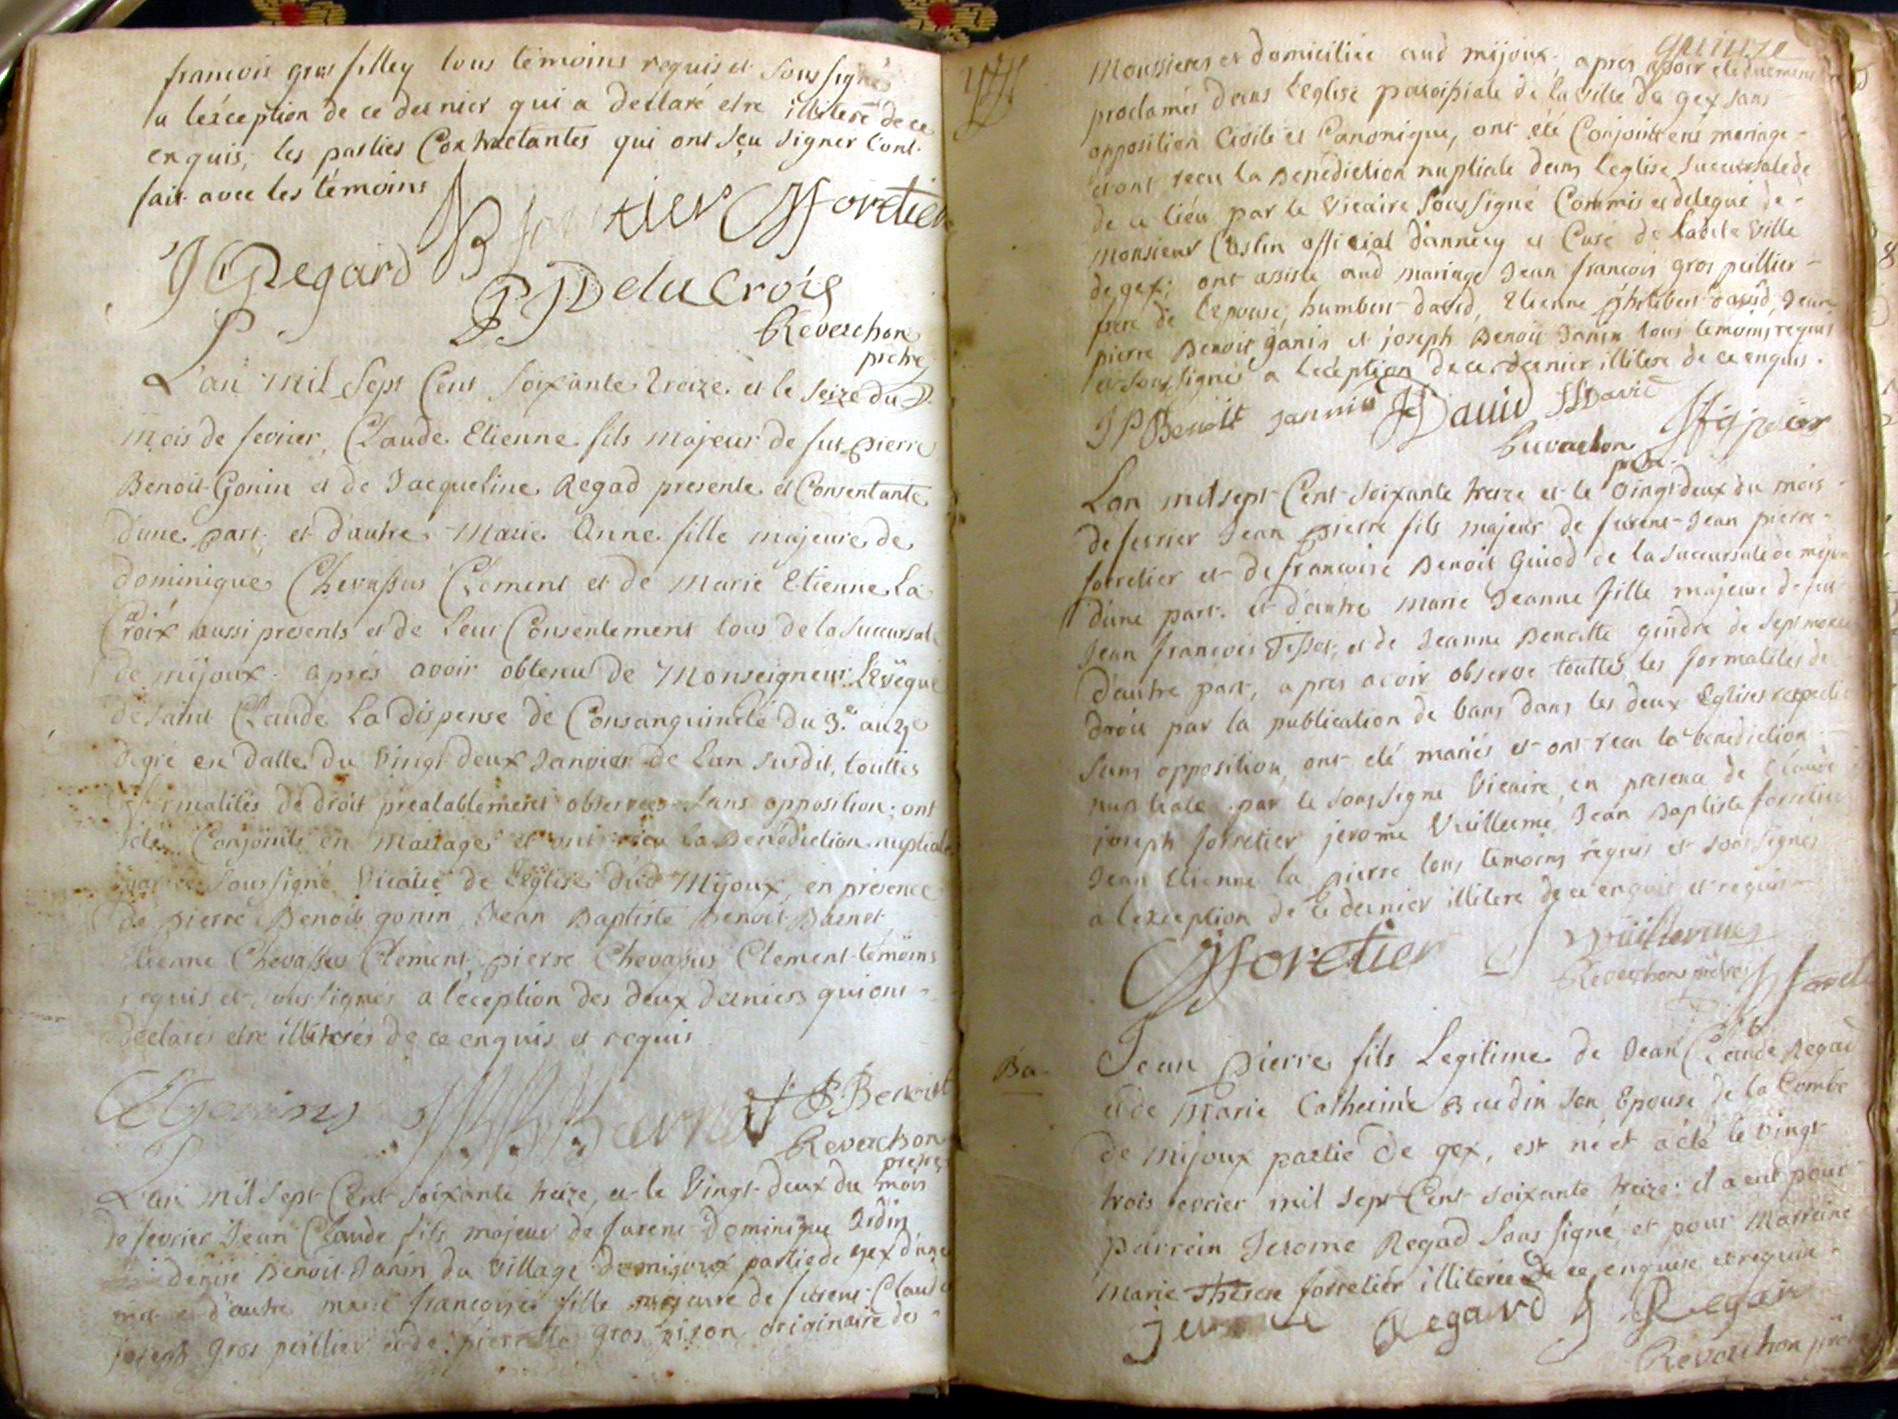 francois gros fillley tous témoins requis et sous signés
a léxception de ce dernier qui a déclaré etre illiteré de ce
enquis, les parties Contractantes qui ont sçu signer l'ont
fait avec les témoins
foretier CJforetier
JC Regard PJDelacroix
Reverchon
pretre
L'an mil Sept Cent soixante treize et le seize du
mois de fevrier, Claude Etienne fils majeur de fut pierre
Benoit-Gonin et de Jacqueline Regad presente et Consentante
d'une part, et d'autre Marie Anne fille majeure de
dominique Chevassus Clement et de Marie Etienne La
Croix aussi presents et de leur Consentement tous de la succursale
de mijoux. après avoir obtenu de Monseigneur L'évêque
de Saint Claude la dispense de Consanguinité du 3.e au 4e
degré en datte du vingt deux Janvier de l'an susdit, touttes
formalités de droit préalablement observées sans opposition; ont
été Conjoints en Mariage et ont reçu la Bénédiction nuptiale
sous signé Vicaire de l'église dud Mijoux, en présence
de pierre Benoit gonin Jean Baptiste Benoit Barnet
Etienne Chevassus Clement, pierre Chevassus Clement témoins
requis et sous signés a l'éception des deux derniers qui ont
déclarés etre illiterés de ce enquis et requis
CEgonin Barnet P. Benoit
Reverchon
pretre
L'an mil sept Cent soixante treize, et le vingt-deux du mois
de fevrier Jean Claude fils majeur de furent Dominique
denise Benoit-Janin du village de mijoux partie de gex d'une
part et d'autre marie francoise fille majeure de furent Claude
joseph gros peillier et de pierrette gros originaire des
Moussieres et domiciliée aud mijoux. apres avoir été duement
proclamés dans l'église paroissiale de la ville de gex sans
opposition Civile et Canonique, ont été Conjoint en mariage
et ont recu la Benediction nuptiale dans l'eglise succursale de
de ce lieu par le vicaire sous signé Commis et delegué de
monsieur Caslin official d'annecy et Curé de ladite ville
de gex; ont assisté aud mariage Jean francois gros peillier
frere de l'epouse, humbert david, Etienne philibert david, Jean
pierre Benoit janin et joseph Benoit Janin tous temoins requis
et sous signés a l'éception de ce dernier illiteré de ce enquis.
JPBenoit jannin David david
Reverchon
pretre
L'an mil sept Cent soixante treize et le vingt deux du mois
de fevrier Jean pierre fils majeur de furent Jean pierre
forretier et de francoise Benoit Guiod de la succursale de mijoux
d'une part. et d'autre marie Jeanne fille majeure de fut
Jean francois Tissot, et de Jeanne Benoitte gindre de septmoncel
d'autre part, apres avoir observé touttes les formalités de
droit par la publication de bans dans les deux Eglises respectives
sans opposition, ont eté mariés et ont recu la benediction
nuptiale par le sous signé Vicaire, en presence de Claude
joseph forretier jerome Vuillerme, Jean Baptiste forretier
Jean Etienne la pierre tous temoins requis et sous signés
a l'exception de ce dernier illiteré de ce enquis et requis
CJforetier J vuillerme
Reverchon prêtre
Ba
Jean pierre fils Legitime de Jean Claude Regad
et de Marie Catherine Burdin son Epouse de la Combe
de mijoux partie de gex, est né et a été le vingt
trois fevrier mil sept Cent soixante treize. il a eut pour
parrein Jerome Regad sous signé et pour Marreine
marie therese forretier illiterée de ce enquise et requise.
jerome Regard J Regard
Reverchon prêtre